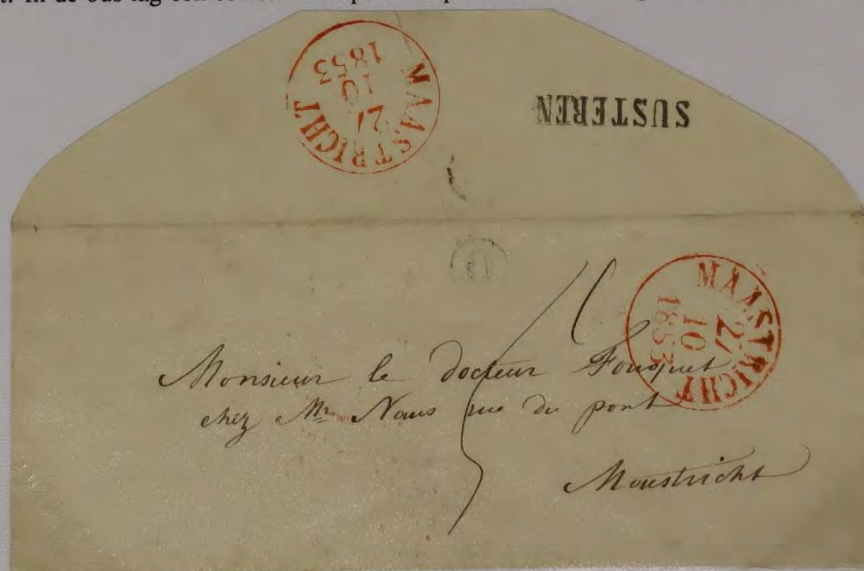 MAASTRICHT
27
10
1853
SUSTEREN
MAASTRICHT
27
10
1853
Monsieur le docteur Fouquet
chez Mr. Naus rue du pont
Maestricht